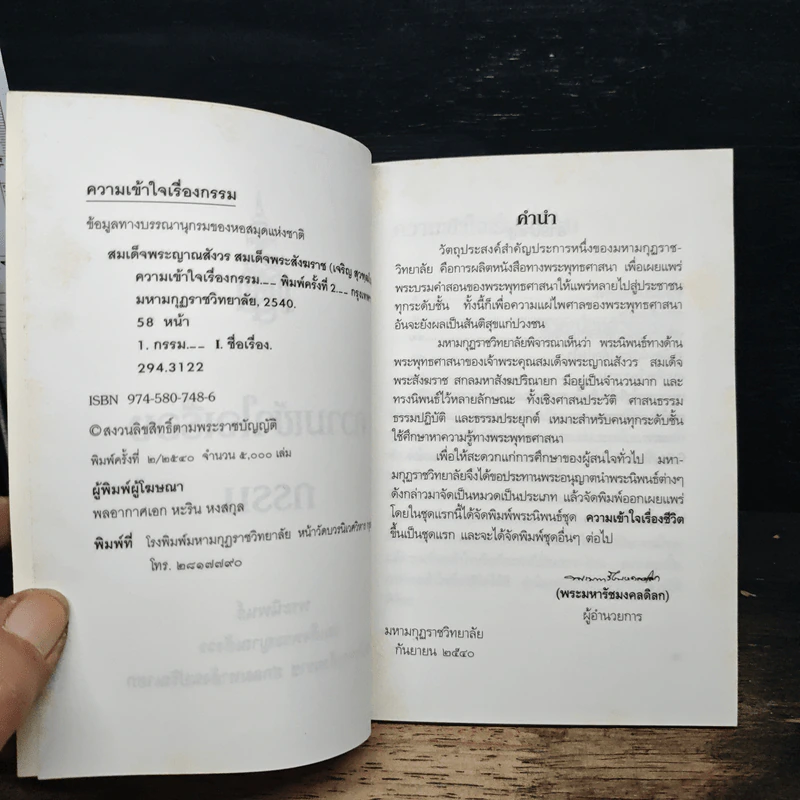 ความเข้าใจเรื่องกรรม
ข้อมูลทางบรรณานุกรมของหอสมุดแห่งชาติ
สมเด็จพระญาณสังวร สมเด็จพระสังฆราช (เจริญ
ความเข้าใจเรื่องกรรม.-- พิมพ์ครั้งที่ 2.--
มหามกุฏราชวิทยาลัย, 2540.
58 หน้า
1. กรรม.-- I. ชื่อเรื่อง.
294.3122
ISBN 974-580-748-6
© สงวนลิขสิทธิ์ตามพระราชบัญญัติ
พิมพ์ครั้งที่ ๒/๒๕๔๐ จำนวน ๕,๐๐๐ เล่ม
ผู้พิมพ์ผู้โฆษณา
พลอากาศเอก หะริน หงสกุล
พิมพ์ที่ โรงพิมพ์มหามกุฏราชวิทยาลัย หน้าวัดบวรนิเวศวิหาร
โทร. ๒๘๑๗๗๙๐
คำนำ
วัตถุประสงค์สำคัญประการหนึ่งของมหามกุฏราช-
วิทยาลัย คือการผลิตหนังสือทางพระพุทธศาสนา เพื่อเผยแพร่
พระบรมคำสอนของพระพุทธศาสนาให้แพร่หลายไปสู่ประชาชน
ทุกระดับชั้น ทั้งนี้ก็เพื่อความแผ่ไพศาลของพระพุทธศาสนา
อันจะยังผลเป็นสันติสุขแก่ปวงชน
มหามกุฏราชวิทยาลัยพิจารณาเห็นว่า พระนิพนธ์ทางด้าน
พระพุทธศาสนาของเจ้าพระคุณสมเด็จพระญาณสังวร สมเด็จ
พระสังฆราช สกลมหาสังฆปริณายก มีอยู่เป็นจำนวนมาก และ
ทรงนิพนธ์ไว้หลายลักษณะ ทั้งเชิงศาสนประวัติ ศาสนธรรม
ธรรมปฏิบัติ และธรรมประยุกต์ เหมาะสำหรับคนทุกระดับชั้น
ใช้ศึกษาหาความรู้ทางพระพุทธศาสนา
เพื่อให้สะดวกแก่การศึกษาของผู้สนใจทั่วไป มหา-
มกุฏราชวิทยาลัยจึงได้ขอประทานพระอนุญาตนำพระนิพนธ์ต่างๆ
ดังกล่าวมาจัดเป็นหมวดเป็นประเภท แล้วจัดพิมพ์ออกเผยแพร่
โดยในชุดแรกนี้ได้จัดพิมพ์พระนิพนธ์ชุด ความเข้าใจเรื่องชีวิต
ขึ้นเป็นชุดแรก และจะได้จัดพิมพ์ชุดอื่นๆ ต่อไป
(พระมหารัชมงคลดิลก)
ผู้อำนวยการ
มหามกุฏราชวิทยาลัย
กันยายน ๒๕๔๐